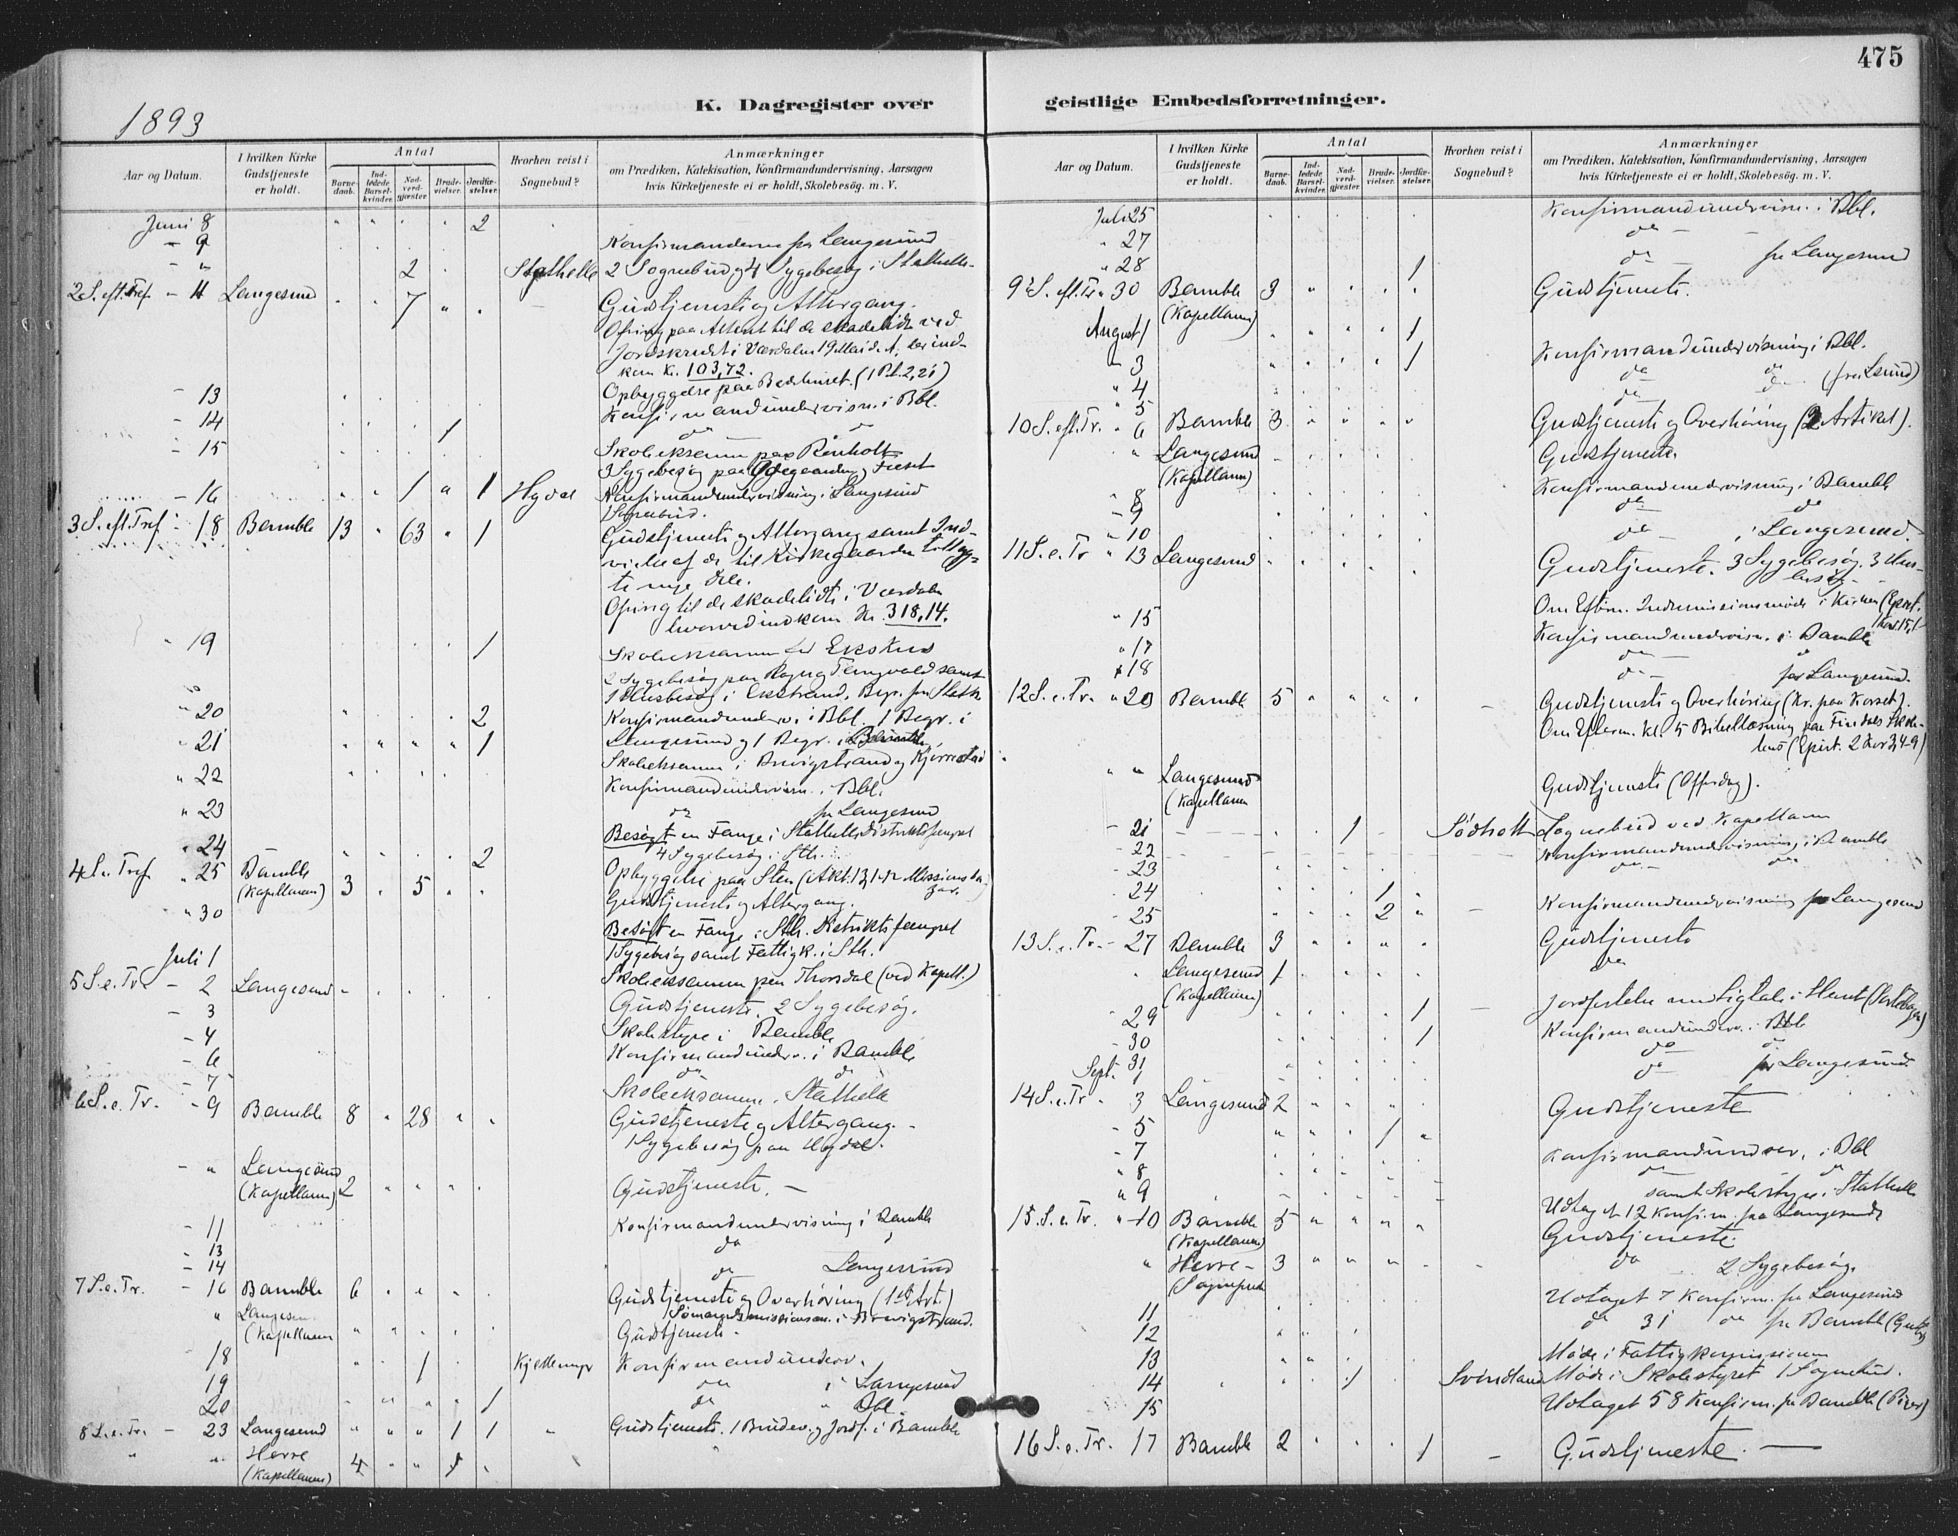 475
K. Dagregister over geistlige Embedsforretninger.
1893
Aar og Datum. I hvilken Kirke Gudstjeneste er holdt. Antal Barnedaab. Indledede Barselkvinder. Nadverdgjester Brudevielser. Jordfæstelser Hvorhen reist i Sognebud? Anmærkninger om Prædiken, Katekisation, Konfirmandundervisning, Aarsagen hvis Kirketjeneste ei er holdt, Skolebesøg. m. V.
Juni 8 " " " " 2
- 9 Konfirmanderne fra Langesund
- " 2 Stathelle 2 Sognebud og 4 Sygebesøg i Stathelle
2 S. eft. Tref. - 11 Langesund " " 7 " " Gudstjeneste og Altergang.
Ofring paa Alteret til de skadelidte ved
Jordskredet i Værdalen 19 Mai d. A; der ind-
kom Kr. 103,72.
- 13 Opbyggelse paa Bedehuset. (1 Pet. 2, 21)
- 14 Konfirmandundervisn. i Bbl.
- 15 1 do do
Skoleeksamen paa Rønholt
3 Sygebesøg paa
- 16 " " 1 " 1 Hydal Konfirmandundervisning i Langesund
1 Sognebud.
3 S. eft. Tref - 18 Bamble 13 " 63 " 1 Gudstjeneste og Altergang samt Ind-
vielse af de til Kirkegaarden tillag-
te nye Dele.
Ofring til de skadelidte i Værdalen
hvorved indkom Kr. 318,14.
" 19 1 Skoleeksamen
2 Sygebesøg paa
1 Husbesøg i Ekstrand, Begr. fra Stath.
" 20 " 2 Konfirmandunderv. i Bbl. 1 Begr. i
" 21 " " " " 1 Langesund og 1 Begr. i Bamble.
" 22 Skoleeksamen i
Konfirmandundervisn. i Bbl.
" 23 do fra Langesund
Besøgt en Fange i Stathelle Distriktsfængsel
" 24 " " " 2 4 Sygebesøg i Sth.
4 S. e. Tref. " 25 Bamble (Kapellanen) 3 " 5 " " Opbyggelse paa Sten
Gudstjeneste og Altergang.
" 30 Besøgt en Fange i Sth. Distriktsfængsel
1 Sygebesøg samt Fattigk. i Sth.
Juli 1 Skoleeksamen paa Thorsdal (ved Kapell.)
5 S. e. Tr. - 2 Langesund Gudstjeneste. 2 Sygebesøg.
- 3 Skolestyre i Bamble
- 4 Konfirmandunderv. i Bamble
- 6 do do
- 7 Skoleeksamen i Stathelle
6 S. e. Tr. - 9 Bamble 8 " 28 " " Gudstjeneste og Altergang.
1 Sygebesøg paa Hydal.
- " Langesund (Kapellanen) 2 " " " " Gudstjeneste. -
- 11 Konfirmandundervisning i Bamble
- 13 do
- 14 do Langesund
7 S. e. Tr. - 16 Bamble 6 " " " Gudstjeneste og Overhøring (1ste Art.)
i Brevigstrand.
" Langesun. (Kapellanen " " " " Gudstjeneste.
- 18 " " 1 Kjellemyr Konfirmandunderv.
- 19 do i Langesund
- 20 " " " 1 do " Bbl.
8 S. e. Tr. - 23 Langesund " " " 1 1 " Gudstjeneste. 1 Brudev. og Jordf. i Bamble
" " Herre (Kapellanen) 4 " " 1 "
Aar og Datum. I hvilken Kirke Gudstjeneste er holdt. Antal Barnedaab. Indledede Barselkvinder. Nadverdgjester Brudevielser. Jordfæstelser. Hvorhen reist i Sognebud? Anmærkninger om Prædiken, Katekisation, Konfirmandundervisning, Aarsagen hvis Kirketjeneste ei er holdt, Skolebesøg m. V.
Juli 25 Konfirmandundervisn. i Bbl.
" 27 do
" 28 1 do - fra Langesund
9 S. eft. Tr. " 30 Bamble (Kapellanen) 3 " " " 1 Gudstjeneste.
August 1 " " " 1
- 3 " " " 1 Konfirmandundervisning i Bbl.
" 4 do do
" 5 do do (fra Lsund)
10 S. eft. Tr. " 6 Bamble 3 " " " " Gudstjeneste og Overhøring (2 Artikel).
" Langesund (Kapellanen) Gudstjeneste.
" 8 Konfirmandundervisning i Bamble
- 9 do do
- 10 do i Langesund.
11 S. e. Tr " 13 Langesund Gudstjeneste. 3 Sygebesøg. 3 Hus-
besøg.
Om Efterm. Indremissionsmøde i Kirken
" 15 Konfirmandundervisn. i Bamble
" 17 do
" 18 do - fra Langesund.
12 S. e. Tr. " 20 Bamble 5 " " " " Gudstjeneste og Overhøring (Kr. paa Korset).
Om Efterm. kl. 5 Bibellæsning paa Findals Skole-
hus (Epist. 2 Kor 3, 4-9)
" " Langesund (Kapellanen Gudstjeneste (Offerdag).
- 21 1 Sødholt Sognebud ved Kapellanen
- 22 Konfirmandundervisning i Bamble
- 23 do do
- 24 1
- 25 2 " Konfirmandundervisning fra Langesund
13 S. e. Tr. - 27 Bamble 3 " " " " Gudstjeneste
" Langesund (Kapellanen) 1 do
- 29 1 Jordfæstelse med Ligtale i Huset
- 30 1 Konfirmandunderv. i Bbl
31 do do
Sept. 1 do fra Langesund
14 S. e. Tr " 3 Langesund 2 Gudstjeneste
- 5 " " " 1 "
- 7 Konfirmandunderv. i Bbl
" 8 do do
" 9 samt Skolestyre i Stathelle
Udtaget 12 Konfirm. fra Langesund
15. S. e. Tr. " 10 Bamble (Kapellanen) 5 " " " " Gudstjeneste.
" Herre - (Sognepræst 3 " " " do 2 Sygebesøg.
11 Udtaget 7 Konfirm. fra Langesund
12 do 31 do fra Bamble
13 Møde i Fattigkommissionen
14 1 Svindland Møde i Skolestyret 1 Sognebud.
15 Udtaget 58 Konfirm. fra Bamble (Piger)
16 S. e. Tr. 17 Bamble 2 " " " 1 - Gudstjeneste. -